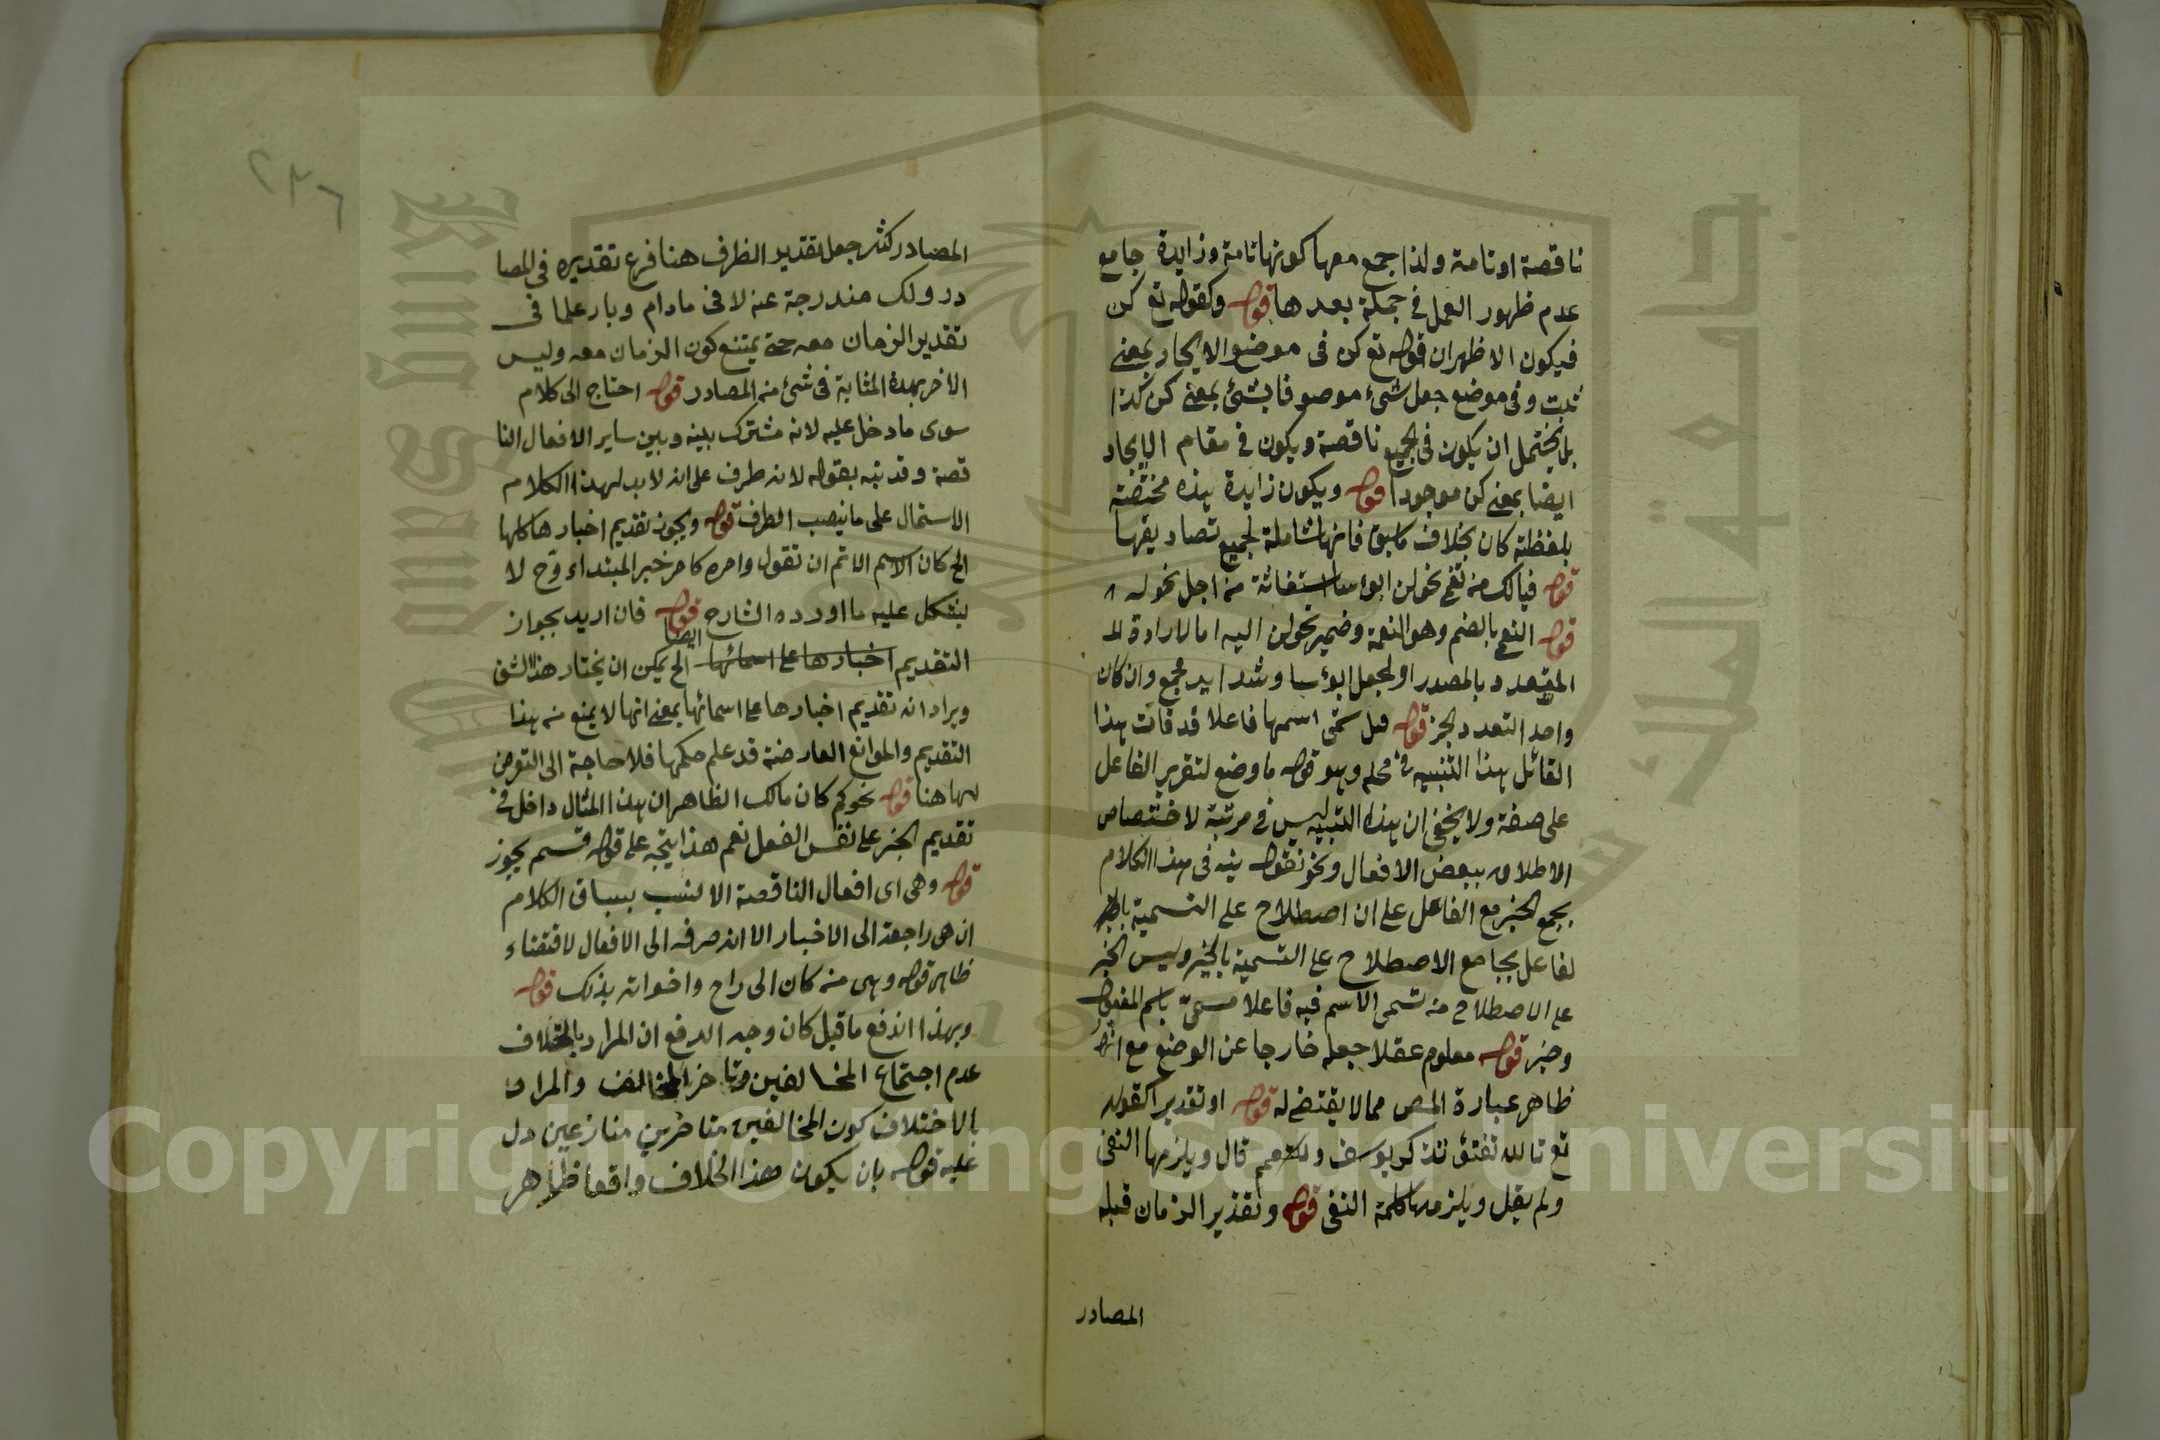 ناقصة او تامة ولذا جمع معها كونها تامة وزايدة جامع
عدم ظهور العمل في جملة بعدها قوله وكقوله تع كن
فيكون الاظهر ان قوله تع كن فى موضع الايجاد بمعنى
ثبت وفى موضع جعل شىء موصوفا بشئ بمعنى كن كذا
بل يحتمل ان يكون فى الجميع ناقصة ويكون فى مقام الايجاد
ايضا بمعنى كن موجودا قوله ويكون زايدة هذه مختصة
بلفظة كان بخلاف ما سبق فانها شاملة لجميع تصاريفها
قوله فيالك من نعمى تحولن ابؤسا استغاثة من اجل تحوله
قوله النعمى بالضم وهو النعمة وضمير تحولن اليه اما لارادة الـ
المتعدد بالمصدر او لجعل ابؤسا وشدايد فجمع وان كان
واحد التعدد الخبر قوله هل سمى اسمها فاعلا قد فات هذا
القائل هذا التنبيه فى محله وهو قوله ما وضع لتقرير الفاعل
على صفة ولا يخفى ان هذا التنبيه ليس فى مرتبة لاختصاص
الاطلاق ببعض الافعال ونحو نقول ينبه فى هذا الكلام
بجمع الخبر مع الفاعل على ان اصطلاح على التسمية
لفاعل يجامع الاصطلاح على التسمية بالخبر وليس الخبر
على الاصطلاح من تسمى الاسم فيه فاعلا مسمى باسم المفعول
وخبر قوله معلوم عقلا جعله خارجا عن الوضع مع انه
ظاهر عبارة المص مما لا يقتضى له قوله او تقديرا كقوله
تع تالله تفتؤ تذكر يوسف قال ويلزمها النفى
ولم يقل ويلزمها كلمة النفى قوله وتقدير الزمان قبله
المصادر
٢٣٦
المصادر كثير جعل تقدير الظرف هنا فرع تقديره فى المصا
در ولك مندرجة عنه لا فى مادام وبار علما فى
تقدير الزمان معه حتى يمتنع كون الزمان معه وليس
الاخر بهذه المثابة فى شئ من المصادر قوله احتاج الى كلام
سوى ما دخل عليه لانه مشترك بينه وبين ساير الافعال النا
قصة وقد نبه بقوله لانه ظرف على انه لا بد لهذا الكلام
الاشتمال على ما ينصب الظرف قوله ويجوز تقديم اخبارها كلها
الخ كان الاسم الاتم ان تقول وامره كامر خبر المبتداء وح لا
يشكل عليه ما اورده الشارح قوله فان اريد بجواز
التقديم اخبارها على اسمائها الخ يمكن ايضا ان يختار هذا الشق
ويراد ان تقديم اخبارها على اسمائها بمعنى انها لا يمنع من هذا
التقديم والموانع العارضة قد علم حكمها فلا حاجة الى التعرض
لها هنا قوله نحو كم كان مالك الظاهر ان هذا المثال داخل فى
تقديم الخبر على نفس الفعل نعم هذا يتجه على قوله قسم يجوز
قوله وهى اى افعال الناقصة الانسب بسياق الكلام
ان هى راجعة الى الاخبار الا انه صرفه الى الافعال لاقتضاء
ظاهر قوله وهى من كان الى راح واخواته بذلك قوله
وبهذا اندفع ما قيل كان وجه الدفع ان المراد بالخلاف
عدم اجتماع المخالفين وتاخر المخالف والمراد
بالاختلاف كون المخالفين متاخرين متنازعين دل
عليه قوله بان يكون هذا الخلاف واقعا ظاهر
Copyright © King Saud University
King Saud University
جامعة الملك سعود
1957